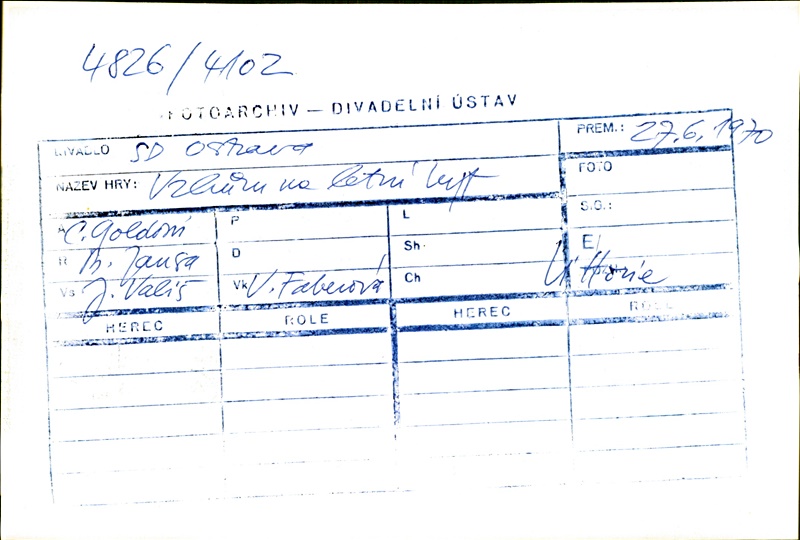 4826/4102
FOTOARCHIV — DIVADELNÍ ÚSTAV
DIVADLO SD Ostrava PREM.: 27.6.1970
NÁZEV HRY: Vzhůru na letní byt FOTO
A C. Goldoni P L S.G.:
R Jansa D Sh. E
Vs J. Vališ Vk V. Faberová Ch
HEREC ROLE HEREC ROLE